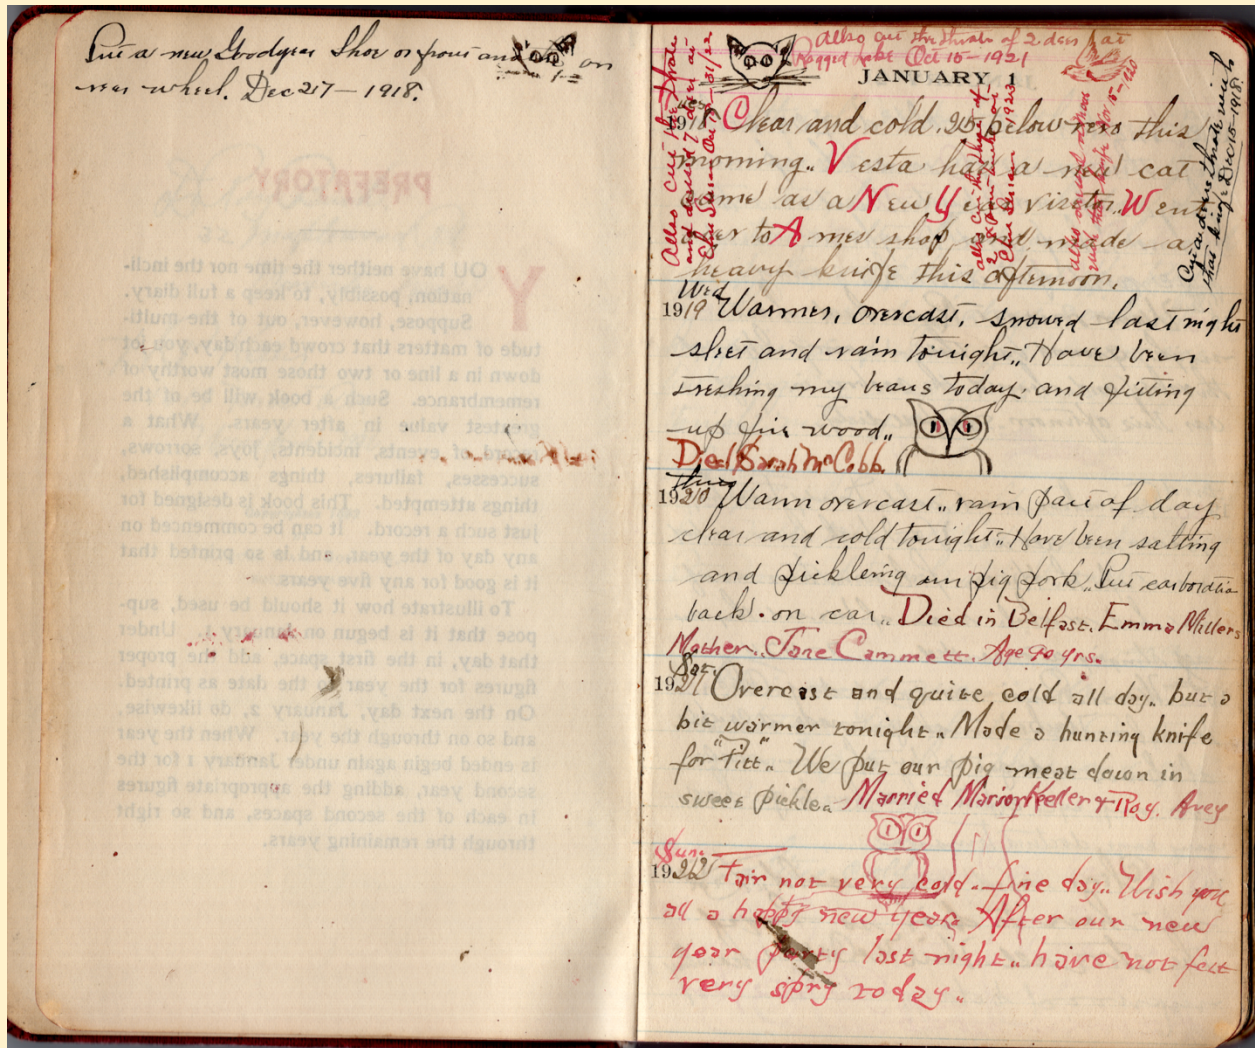 Put a new Goodyear Shoe on front and old on
rear wheel. Dec 27 - 1918.
PREFATORY
YOU have neither the time nor the incli-
nation, possibly, to keep a full diary.
Suppose, however, out of the multi-
tude of matters that crowd each day, you jot
down in a line or two those most worthy of
remembrance. Such a book will be of the
greatest value in after years. What a
record of events, incidents, joys, sorrows,
successes, failures, things accomplished,
things attempted. This book is designed for
just such a record. It can be commenced on
any day of the year, and is so printed that
it is good for any five years.
To illustrate how it should be used, sup-
pose that it is begun on January 1. Under
that day, in the first space, add the proper
figures for the year to the date as printed.
On the next day, January 2, do likewise,
and so on through the year. When the year
is ended begin again under January 1 for the
second year, adding the appropriate figures
in each of the second spaces, and so right
through the remaining years.
Allso cut the throats of 2 deer at
Ragged Lake Oct 15-1921
JANUARY 1
Allso cut the throats
and dressed 7 deer at
Allso cut the
2
1923
Allso
Nov 15-1920
Cut a deers throat with
this knife Dec 15-1918
1918 Clear and cold. 25 below zero this
morning.. Vesta had a new cat
came as a New Years visitor. Went
over to Ames shop and made a
heavy knife this afternoon.
Wed
1919 Warmer, overcast, snowed last night
sleet and rain tonight.. Have been
treshing my beans today. and fitting
up fire wood..
Died Sarah McCobb.
Thurs
1920 Warm overcast.. rain part of day
clear and cold tonight.. Have been salting
and pickleing our pig pork. Put carborator
back. on car.. Died in Belfast. Emma Millers
Mother.. Jane Cammett. Age 90 yrs.
Sat.
1921 Overcast and quite cold all day.. but a
bit warmer tonight.. Made a hunting knife
for "Titt".. We put our pig meat down in
sweet pickle.. Married Marion Keeller & Roy. Avey
Sun.
1922 Fair not very cold.. fine day.. Wish you
all a happy new year. After our new
year party last night.. have not felt
very spry today..